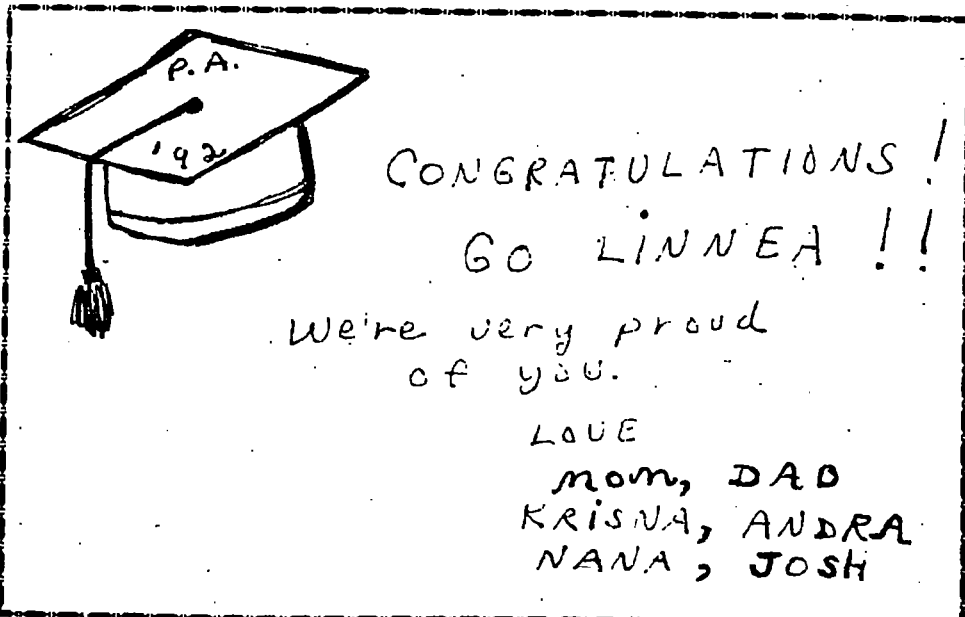 P.A.
'92
CONGRATULATIONS!
GO LINNEA !!
We're very proud
of you.
LOVE
Mom, DAD
KRISNA, ANDRA
NANA, JOSH